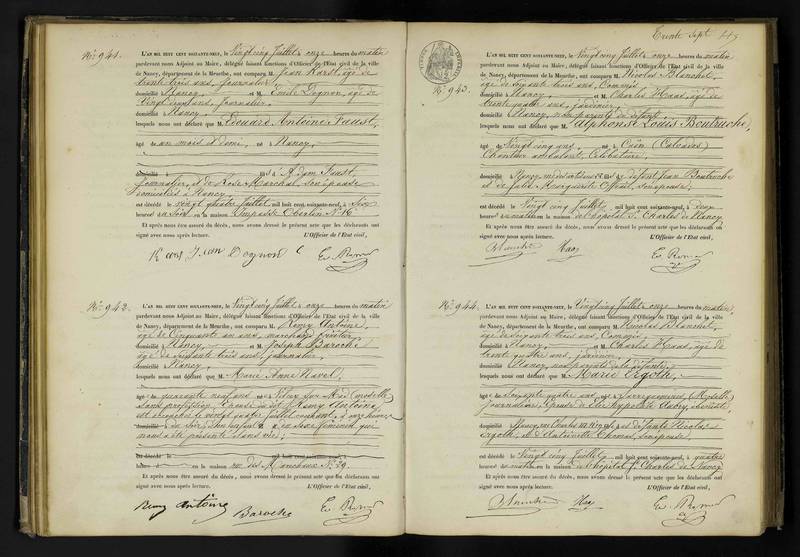 N° 941.
L'AN MIL HUIT CENT SOIXANTE-NEUF, le Vingt cinq Juillet, onze heures du matin
pardevant nous Adjoint au Maire, délégué faisant fonctions d'Officier de l'État civil de la ville
de Nancy, département de la Meurthe, ont comparu M. Jean Karst, âgé de
trente trois ans, journalier,
domicilié à Nancy, et M. Emile Dognon, âgé de
Vingt cinq ans, journalier,
domicilié à Nancy,
lesquels nous ont déclaré que M. Edouard Antoine Faust,
âgé de un mois et demi, né à Nancy,
domicilié à fils d'Adam Faust,
journalier, et de Rose Marchal, son épouse
domiciliés à Nancy
est décédé le vingt quatre Juillet mil huit cent soixante-neuf, à Six
heures du Soir en la maison Impasse Oberlin N° 16
Et après nous être assuré du décès, nous avons dressé le présent acte que les déclarants ont
signé avec nous après lecture. L'Officier de l'État civil,
Dognon
N° 942.
L'AN MIL HUIT CENT SOIXANTE-NEUF, le Vingt cinq Juillet, onze heures du matin
pardevant nous Adjoint au Maire, délégué faisant fonctions d'Officier de l'État civil de la ville
de Nancy, département de la Meurthe, ont comparu M. Remy Antoine,
âgé de Cinquante un ans, marchand fruitier
domicilié à Nancy, et M. Joseph Baroche
âgé de Soixante trois ans, journalier,
domicilié à Nancy,
lesquels nous ont déclaré que M. Marie Anne Navel,
âgée de quarante neuf ans née à
Sans profession, Epouse du dit Remy Antoine,
est accouchée le vingt quatre Juillet courant, à onze heures
du soir, d'un enfant du sexe féminin qui
nous a été présenté sans vie;
est décédé le mil huit cent soixante-neuf, à
heures en la maison rue des Maréchaux N° 29.
Et après nous être assuré du décès, nous avons dressé le présent acte que les déclarants ont
signé avec nous après lecture. L'Officier de l'État civil,
Remy Antoine Baroche
Trente Sept
N° 943.
L'AN MIL HUIT CENT SOIXANTE-NEUF, le Vingt cinq Juillet, onze heures du matin
pardevant nous Adjoint au Maire, délégué faisant fonctions d'Officier de l'État civil de la ville
de Nancy, département de la Meurthe, ont comparu M. Nicolas Blanchet,
âgé de Soixante trois ans, Commis,
domicilié à Nancy, et M. Charles Haas, âgé de
trente quatre ans, jardinier,
domicilié à Nancy, non parents du défunt,
lesquels nous ont déclaré que M. Alphonse Louis Boutruche,
âgé de Vingt cinq ans, né à Caen (Calvados)
Célibataire,
domicilié à Nancy, fils de défunt Jean Boutruche
et de Julie Marguerite son épouse,
est décédé le Vingt cinq Juillet, mil huit cent soixante-neuf, à Deux
heures du matin en la maison de l'hôpital St Charles de Nancy
Et après nous être assuré du décès, nous avons dressé le présent acte que les déclarants ont
signé avec nous après lecture. L'Officier de l'État civil,
Blanchet Haas
N° 944.
L'AN MIL HUIT CENT SOIXANTE-NEUF, le Vingt cinq Juillet, onze heures du matin,
pardevant nous Adjoint au Maire, délégué faisant fonctions d'Officier de l'État civil de la ville
de Nancy, département de la Meurthe, ont comparu M. Nicolas Blanchet,
âgé de Soixante trois ans, Commis,
domicilié à Nancy, et M. Charles Haas, âgé de
trente quatre ans, jardinier,
domicilié à Nancy, non parents de la défunte,
lesquels nous ont déclaré que M. Marie Ergoth,
âgée de Soixante quatre ans, née à Sarreguemines (Moselle)
journalière, Epouse de
domiciliée à Nancy, fille de défunts Nicolas
Ergoth et de Catherine Thomas, son épouse,
est décédée le Vingt cinq Juillet, mil huit cent soixante-neuf, à quatre
heures du matin en la maison de l'hôpital St Charles de Nancy
Et après nous être assuré du décès, nous avons dressé le présent acte que les déclarants ont
signé avec nous après lecture. L'Officier de l'État civil,
Blanchet Haas